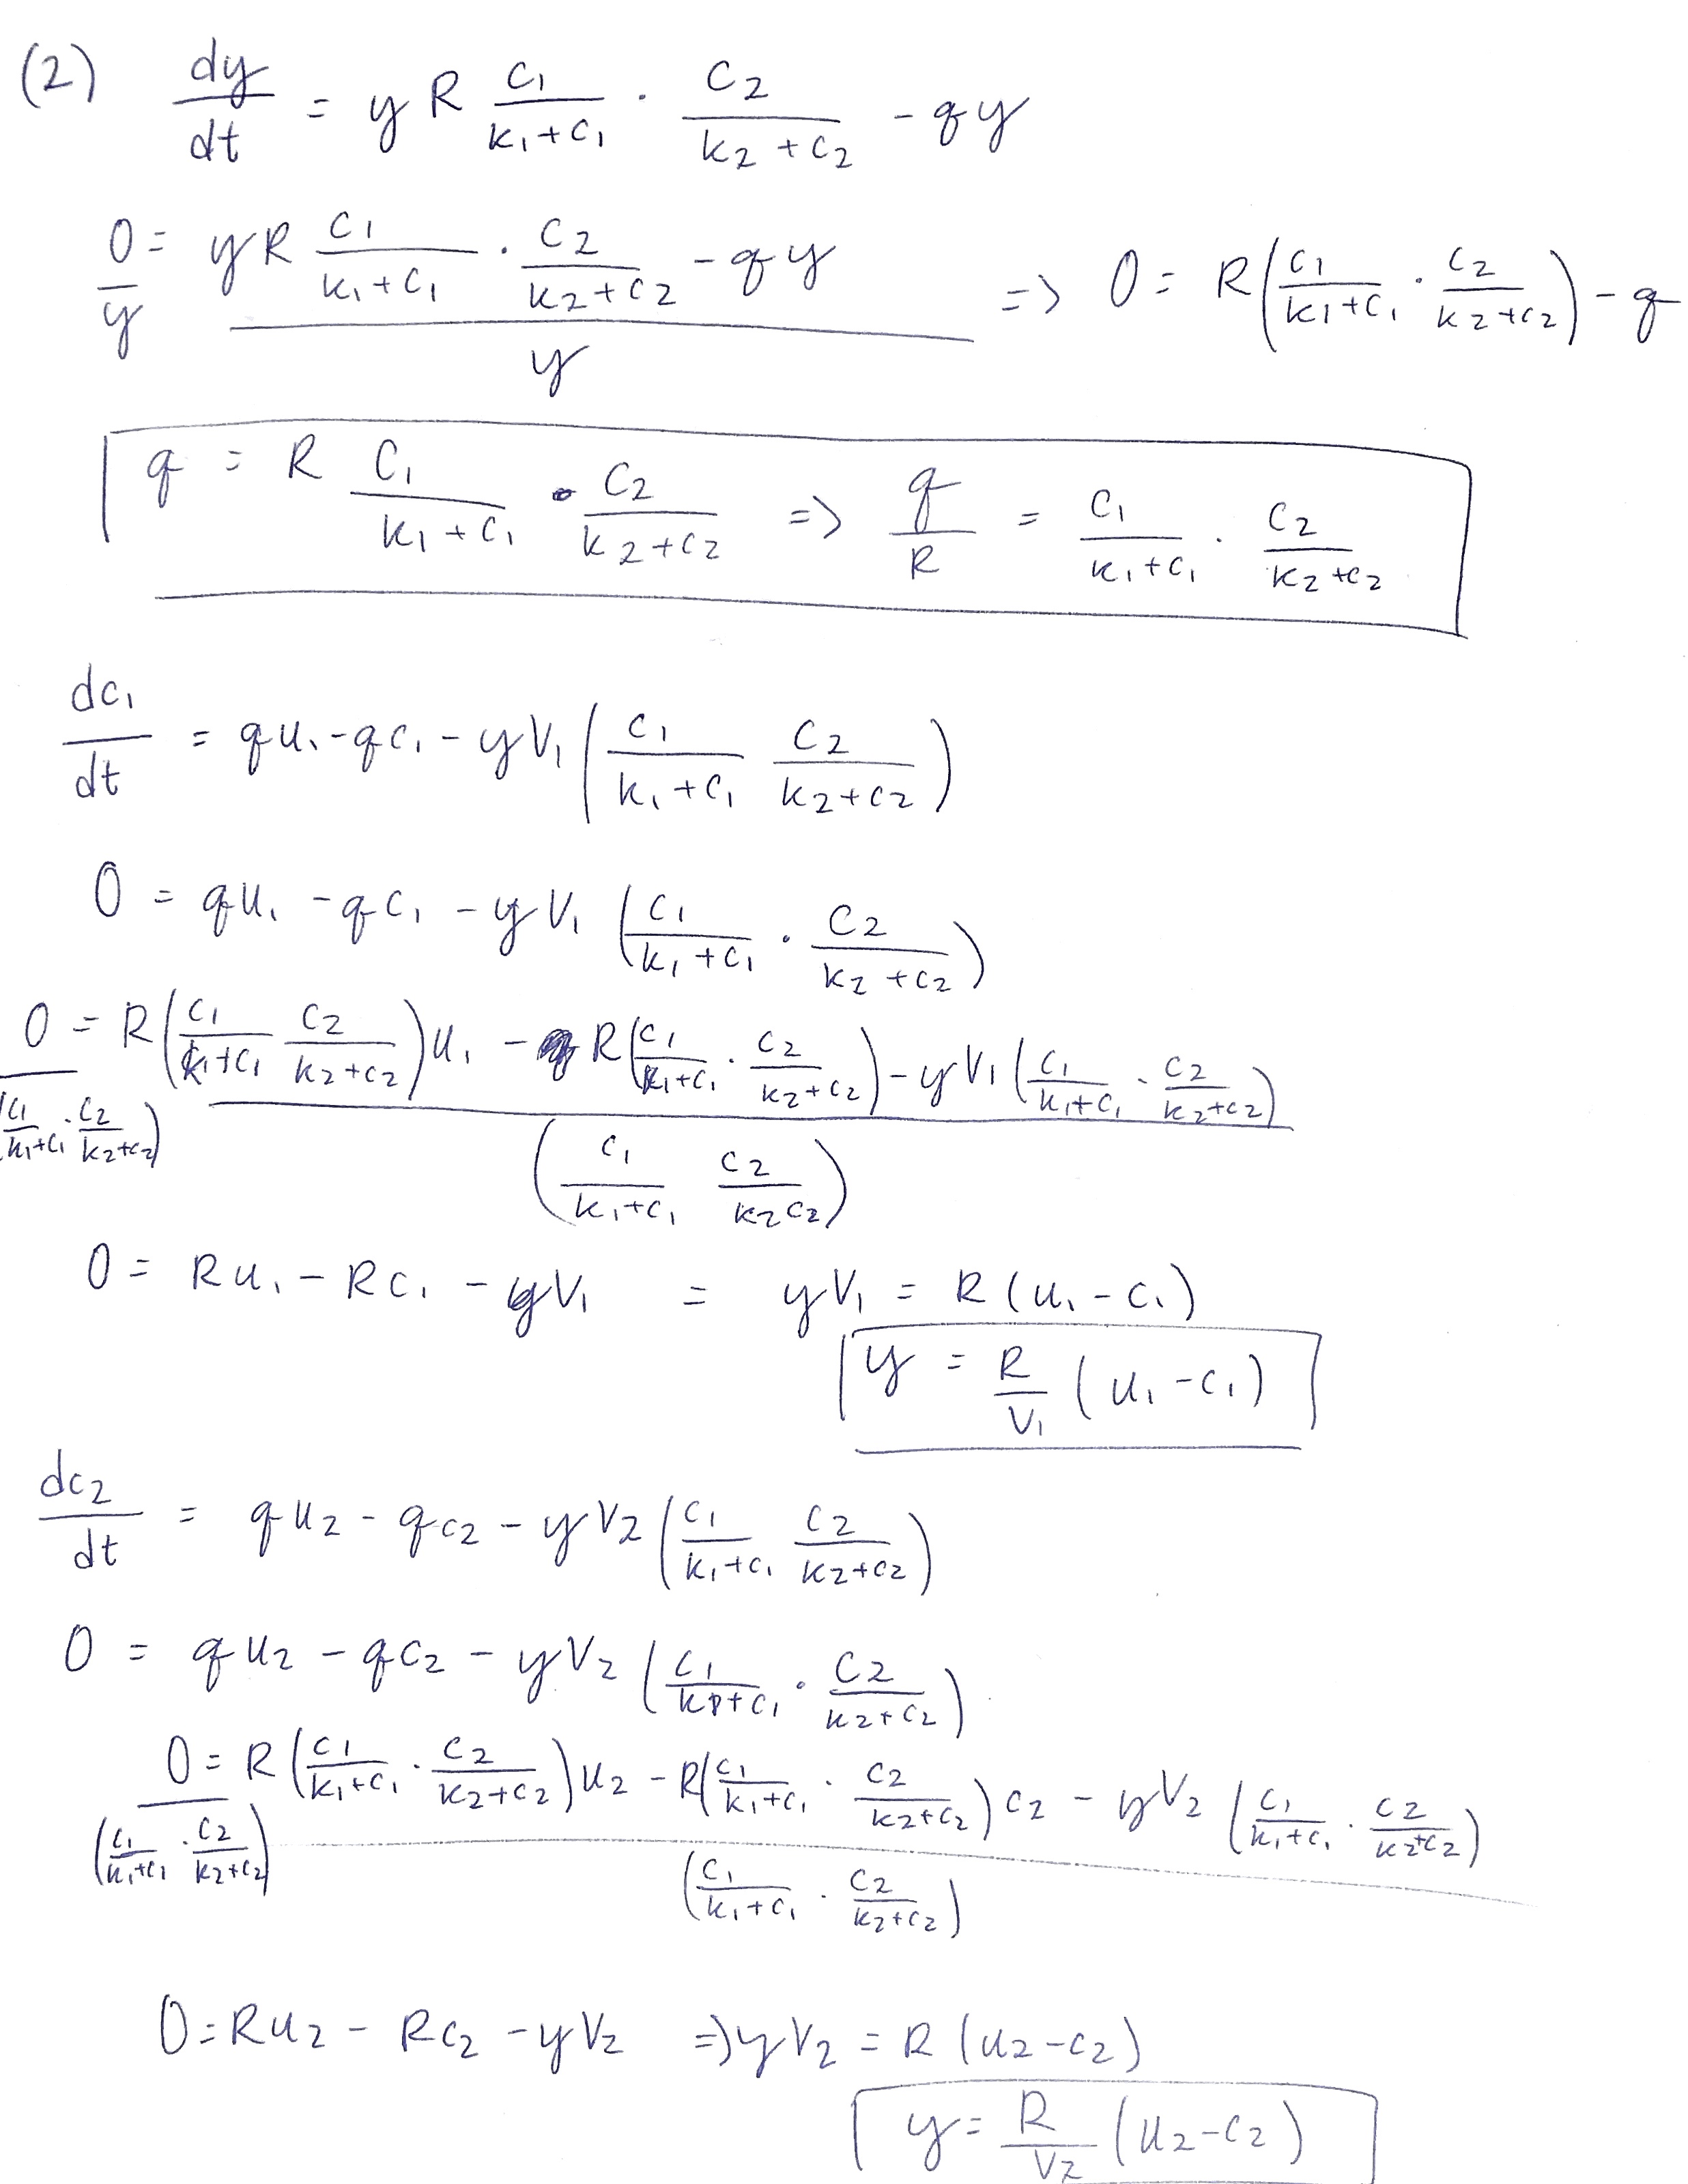 (2) dy/dt = y R C1/(k1+C1) · C2/(k2+C2) - qy
0/y = (yR C1/(k1+C1) · C2/(k2+C2) - qy)/y => 0 = R(C1/(k1+C1) · C2/(k2+C2)) - q
q = R C1/(k1+C1) · C2/(k2+C2) => q/R = C1/(k1+C1) · C2/(k2+C2)
dC1/dt = qu1 - qC1 - yV1(C1/(k1+C1) C2/(k2+C2))
0 = qu1 - qC1 - yV1(C1/(k1+C1) · C2/(k2+C2))
0/(C1/(k1+C1) · C2/(k2+C2)) = (R(C1/(k1+C1) C2/(k2+C2))u1 - R(C1/(k1+C1) · C2/(k2+C2)) - yV1(C1/(k1+C1) · C2/(k2+C2)))/(C1/(k1+C1) C2/(k2C2))
0 = Ru1 - RC1 - yV1 = yV1 = R(u1 - C1)
y = R/V1 (u1 - C1)
dC2/dt = qu2 - qC2 - yV2(C1/(k1+C1) C2/(k2+C2))
0 = qu2 - qC2 - yV2(C1/(k1+C1) · C2/(k2+C2))
0/(C1/(k1+C1) · C2/(k2+C2)) = (R(C1/(k1+C1) · C2/(k2+C2))u2 - R(C1/(k1+C1) · C2/(k2+C2))C2 - yV2(C1/(k1+C1) · C2/(k2+C2)))/(C1/(k1+C1) · C2/(k2+C2))
0 = Ru2 - RC2 - yV2 => yV2 = R(u2 - C2)
y = R/V2 (u2 - C2)